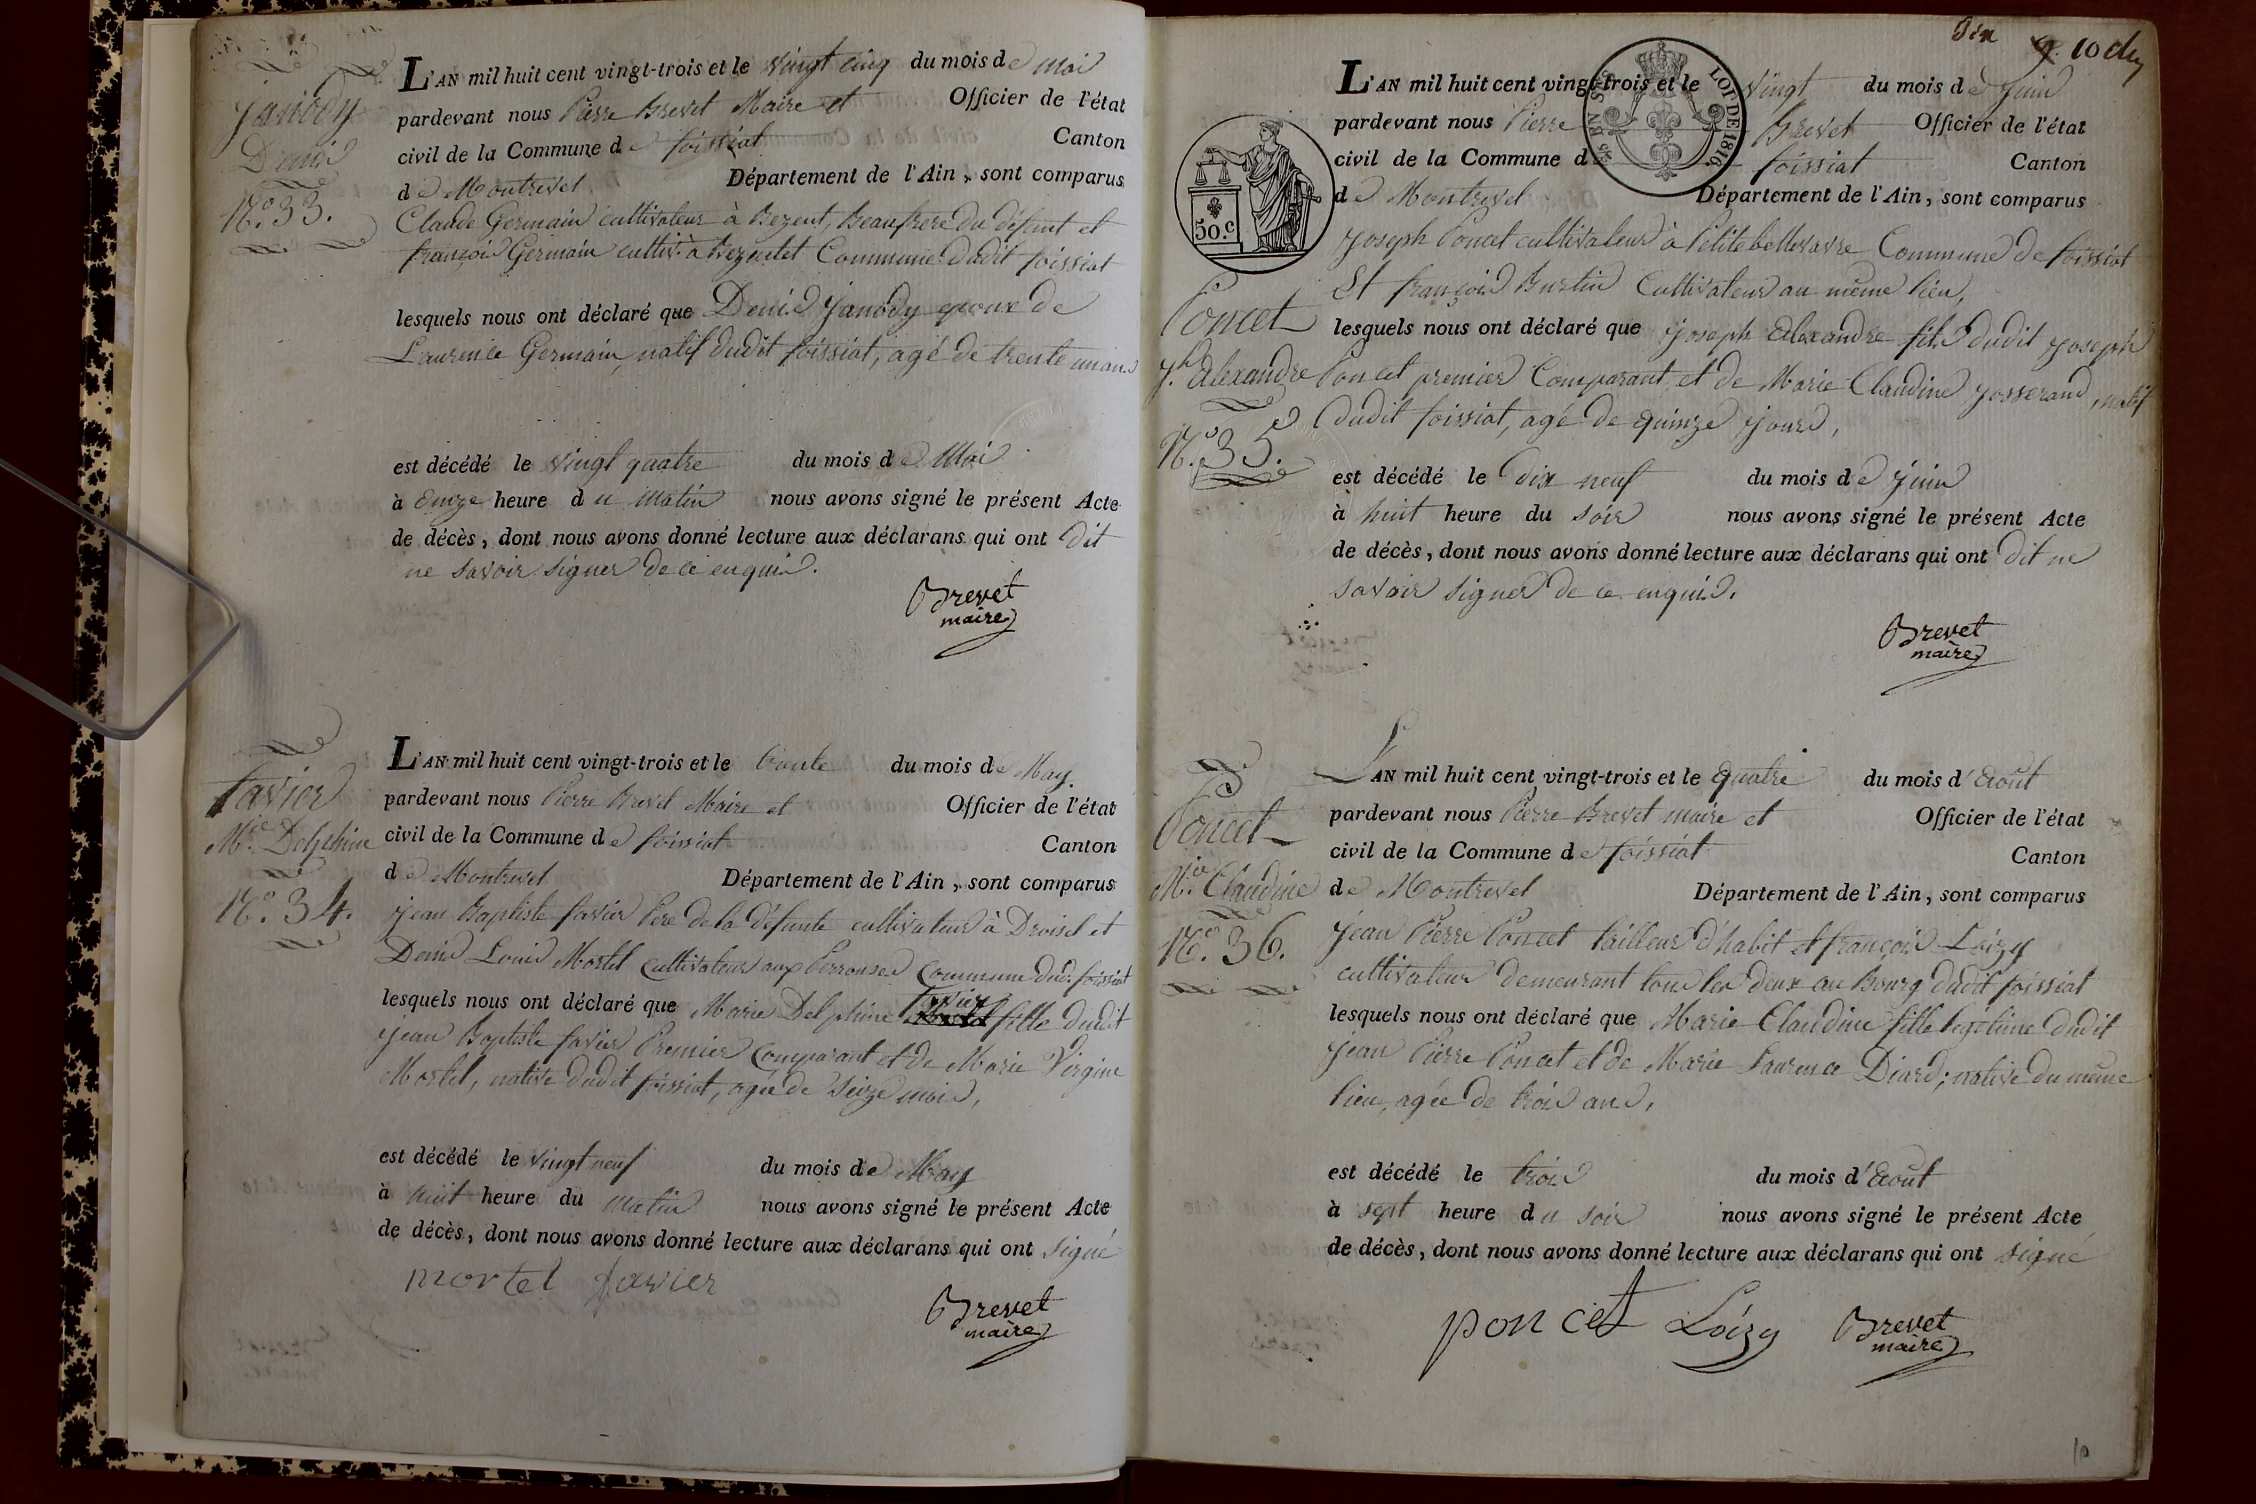 Janody
Denis
N.º 33.
L'AN mil huit cent vingt-trois et le vingt cinq du mois de mai
pardevant nous Pierre Brevet Maire et Officier de l'état
civil de la Commune de foissiat Canton
de Montrevel Département de l'Ain, sont comparus
Claude Germain cultivateur à Bezent, Beaufrere du défunt et
françois Germain cultiv. à Commune dudit foissiat
lesquels nous ont déclaré que Denis Janody epoux de
Laurence Germain, natif dudit foissiat, agé de trente un ans
est décédé le vingt quatre du mois de Mai
à onze heure du matin nous avons signé le présent Acte
de décès, dont nous avons donné lecture aux déclarans qui ont dit
ne savoir signer de ce enquis.
Brevet
maire
favier
M.ie Delphine
N.º 34.
L'AN mil huit cent vingt-trois et le trente du mois de May
pardevant nous Pierre Brevet Maire et Officier de l'état
civil de la Commune de foissiat Canton
de Montrevel Département de l'Ain, sont comparus
jean Baptiste favier Pere de la défunte cultivateur à Droisel et
Denis Louis Mortel cultivateur aux Perrouses Commune dud. foissiat
lesquels nous ont déclaré que Marie Delphine favier fille dudit
jean Baptiste favier Premier Comparant et de Marie Virgine
Mortel, native dudit foissiat, agée de seize mois,
est décédé le vingt neuf du mois de May
à huit heure du matin nous avons signé le présent Acte
de décès, dont nous avons donné lecture aux déclarans qui ont signé
mortel favier
Brevet
maire
10
50.c
LOI DE 1816
Poncet
J.h Alexandre
N.º 35.
L'AN mil huit cent vingt-trois et le vingt du mois de juin
pardevant nous Pierre Brevet Officier de l'état
civil de la Commune de foissiat Canton
de Montrevel Département de l'Ain, sont comparus
joseph Poncet cultivateur à Petite bellevavre Commune de foissiat
Et françois Burtin Cultivateur au même lieu,
lesquels nous ont déclaré que joseph Alexandre fils dudit joseph
Poncet premier Comparant et de Marie Claudine josserand, natif
dudit foissiat, agé de quinze jours,
est décédé le dix neuf du mois de juin
à huit heure du soir nous avons signé le présent Acte
de décès, dont nous avons donné lecture aux déclarans qui ont dit ne
savoir signer de ce enquis.
Brevet
maire
Poncet
M.ie Claudine
N.º 36.
L'AN mil huit cent vingt-trois et le quatre du mois d'Août
pardevant nous Pierre Brevet maire et Officier de l'état
civil de la Commune de foissiat Canton
de Montrevel Département de l'Ain, sont comparus
jean Pierre Poncet tailleur d'habit et françois Loizy
cultivateur demeurant tous les deux au Bourg dudit foissiat
lesquels nous ont déclaré que Marie Claudine fille legitime dudit
jean Pierre Poncet et de Marie Laurence Diard, native du même
lieu, agée de trois ans,
est décédé le trois du mois d'Août
à sept heure du soir nous avons signé le présent Acte
de décès, dont nous avons donné lecture aux déclarans qui ont signé
poncet Loizy Brevet
maire
10